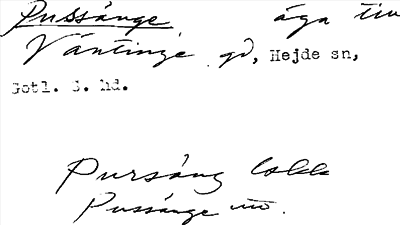 Pussänge äga till
Väntinge gd, Hejde sn,
Gotl. S. hd.
Pursäng
Pussänge